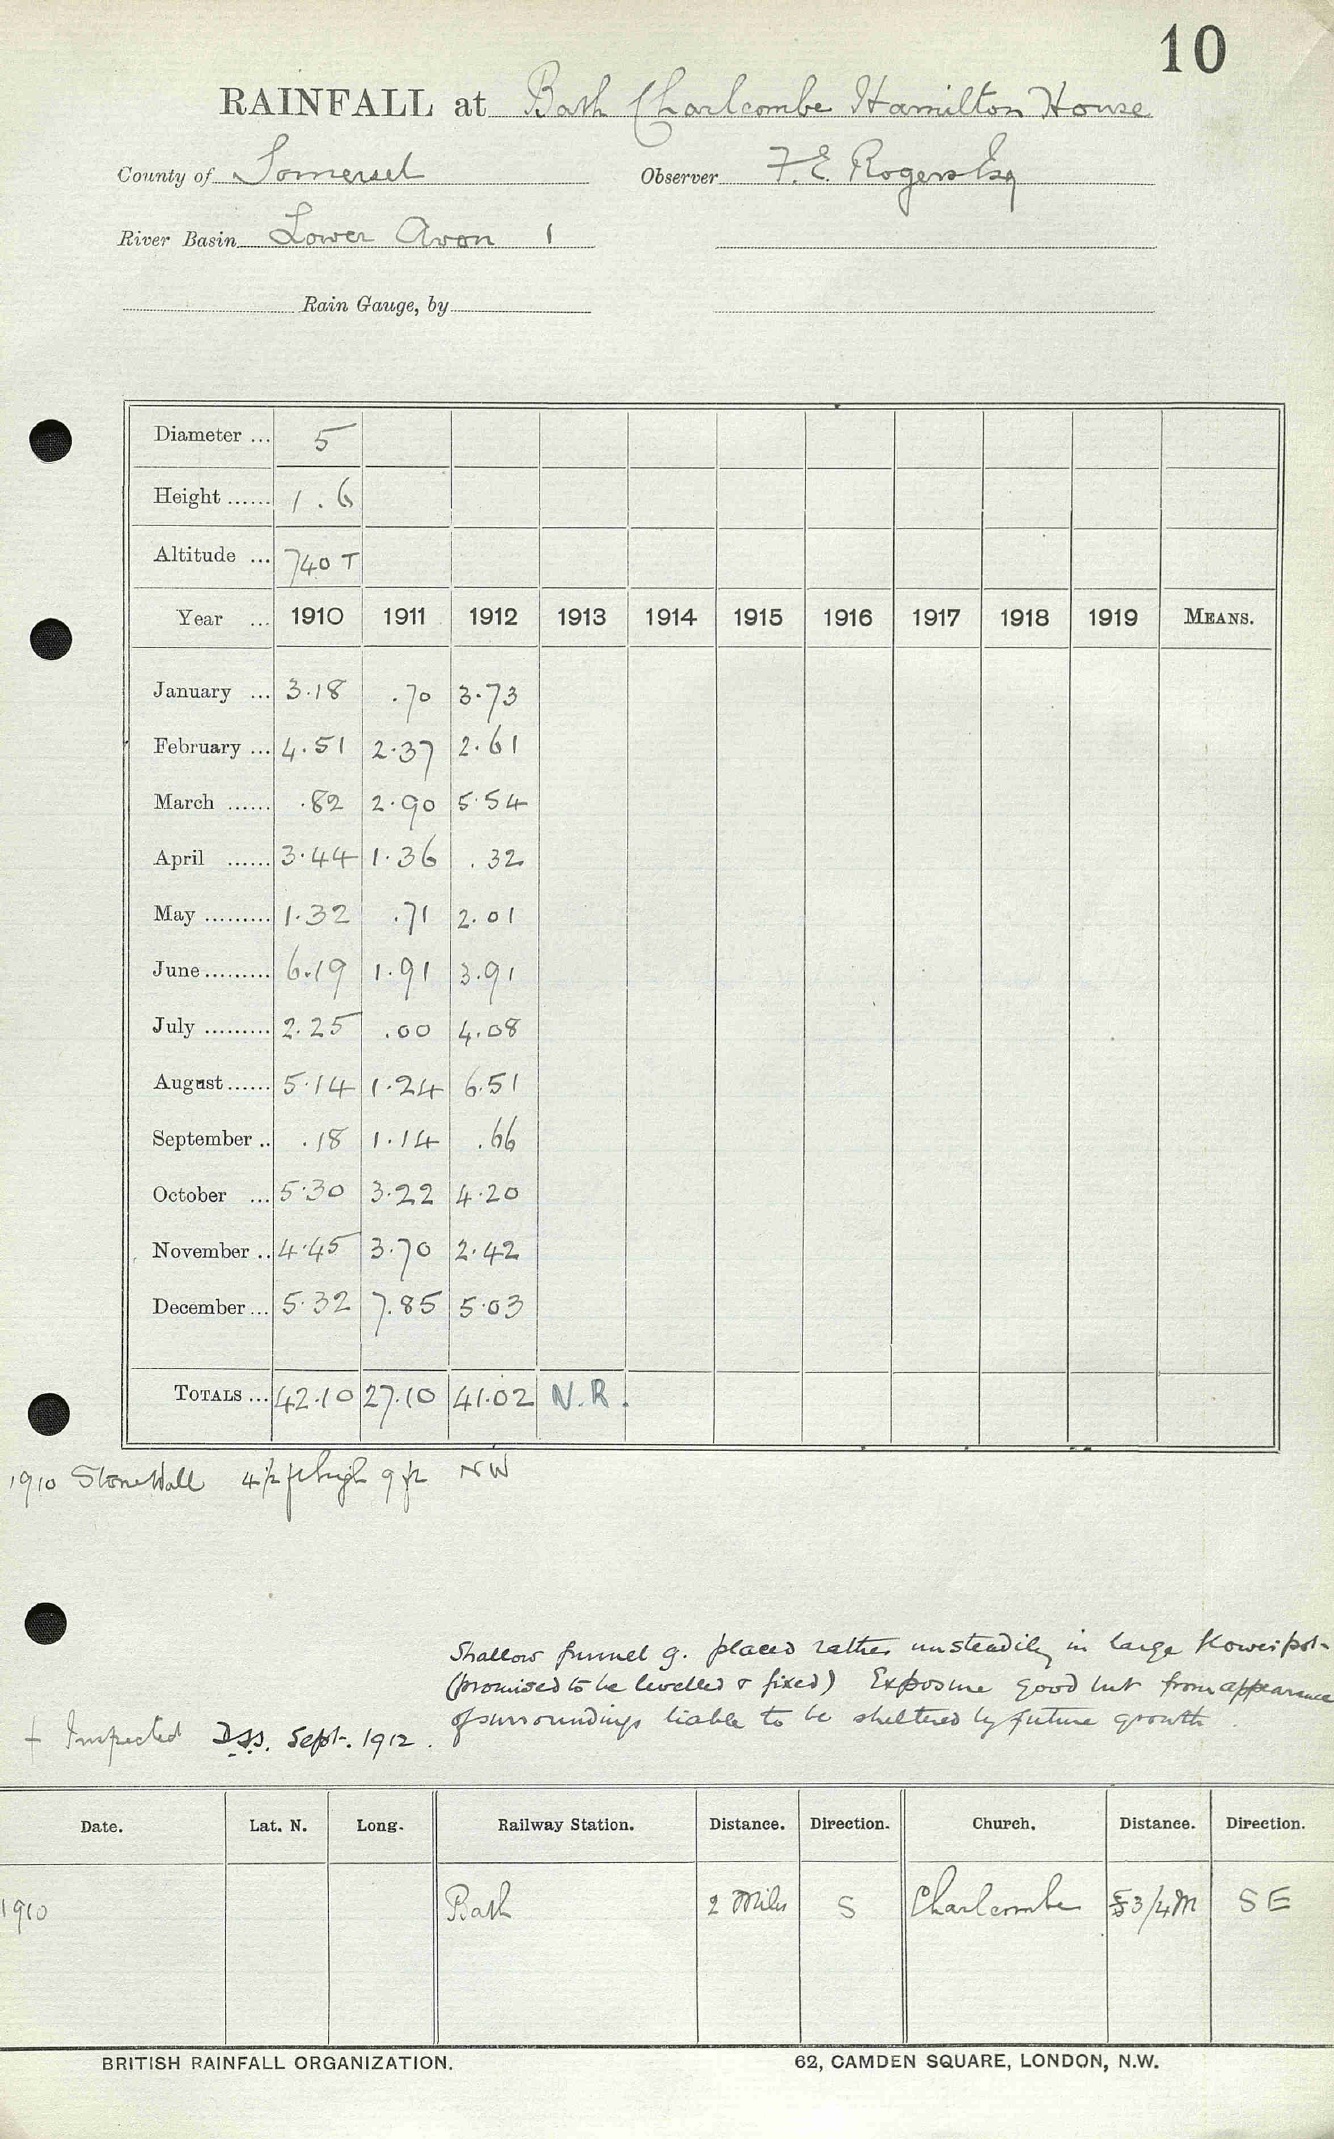 10
RAINFALL at Bath Charlcombe Hamilton House
County of Somerset Observer F. E. Rogers Esq
River Basin Lower Avon 1
Rain Gauge, by
Diameter ... 5
Height ...... 1 . 6
Altitude ... 740 T
Year ... 1910 1911 1912 1913 1914 1915 1916 1917 1918 1919 MEANS.
January ... 3.18 .70 3.73
February ... 4.51 2.37 2.61
March ...... .82 2.90 5.54
April ...... 3.44 1.36 .32
May ......... 1.32 .71 2.01
June ......... 6.19 1.91 3.91
July ......... 2.25 .00 4.08
August ...... 5.14 1.24 6.51
September .. .18 1.14 .66
October ... 5.30 3.22 4.20
November .. 4.45 3.70 2.42
December ... 5.32 7.85 5.03
TOTALS ... 42.10 27.10 41.02 N.R.
1910 Stone Wall 4½ ft high 9 ft NW
Shallow funnel g. placed rather unsteadily in large flower pot -
(promised to be levelled & fixed) Exposure good but from appearance
of surroundings liable to be sheltered by future growth .
+ Inspected Sept. 1912 .
Date. Lat. N. Long. Railway Station. Distance. Direction. Church. Distance. Direction.
1910 Bath 2 Miles S Charlcombe 3/4 M SE
BRITISH RAINFALL ORGANIZATION. 62, CAMDEN SQUARE, LONDON, N.W.